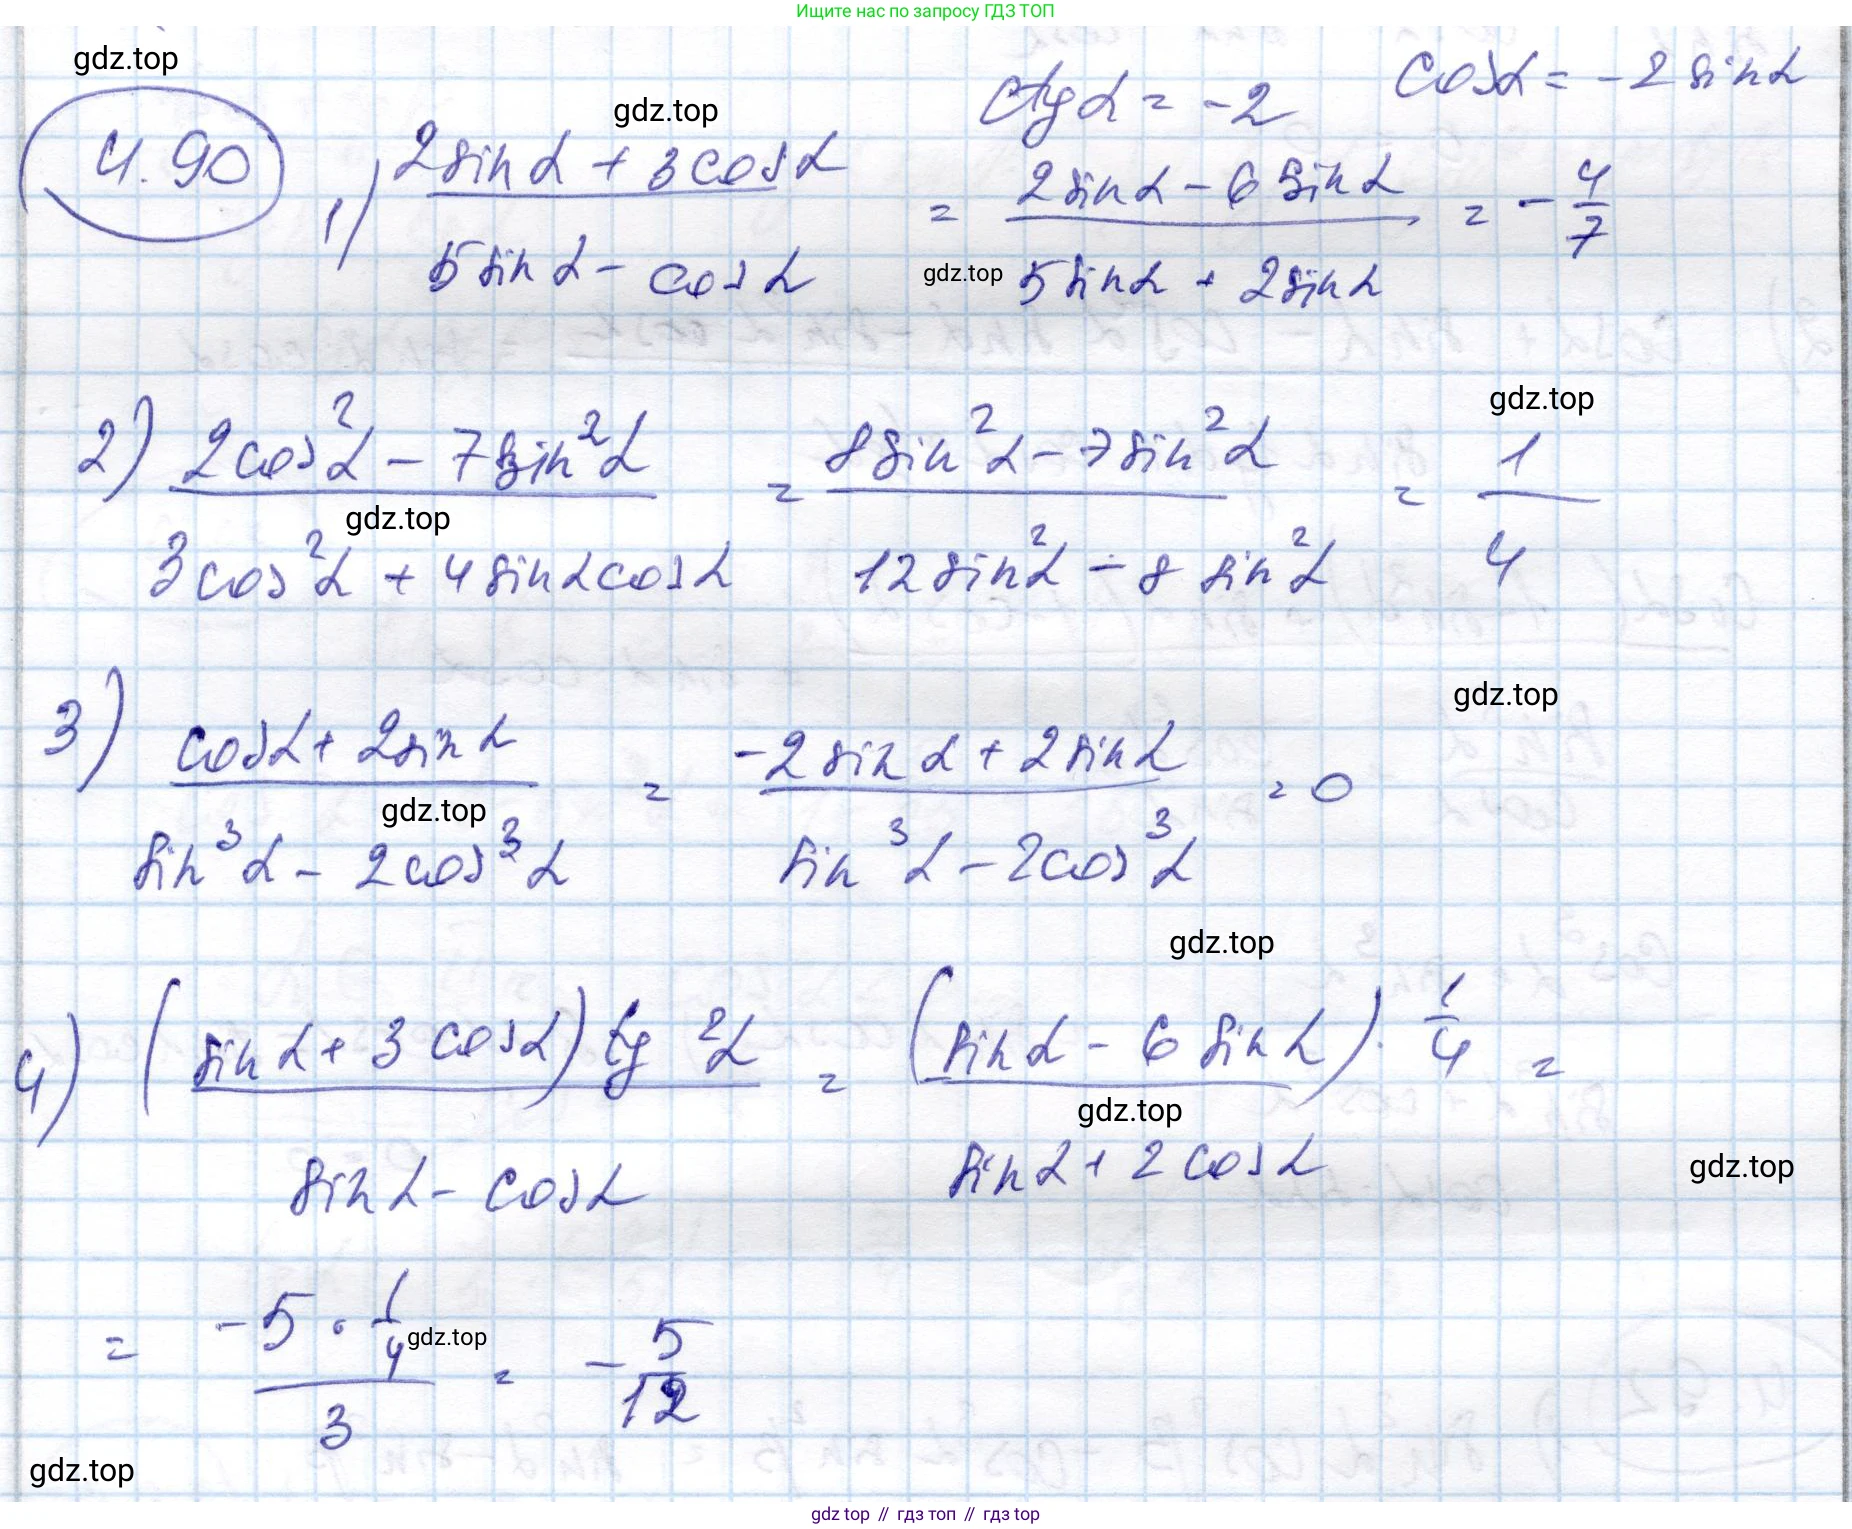 Ищите нас по запросу ГДЗ ТОП
gdz.top
4.90
gdz.top
ctg α = -2   cos α = -2 sin α
1) (2 sin α + 3 cos α)/(5 sin α - cos α) = (2 sin α - 6 sin α)/(5 sin α + 2 sin α) = -4/7
gdz.top
gdz.top
2) (2 cos² α - 7 sin² α)/(3 cos² α + 4 sin α cos α) = (8 sin² α - 7 sin² α)/(12 sin² α - 8 sin² α) = 1/4
gdz.top
gdz.top
3) (cos α + 2 sin α)/(sin³ α - 2 cos³ α) = (-2 sin α + 2 sin α)/(sin³ α - 2 cos³ α) = 0
gdz.top
gdz.top
4) (sin α + 3 cos α) tg² α/(sin α - cos α) = (sin α - 6 sin α) · 1/4/(sin α + 2 cos α) =
gdz.top
gdz.top
= (-5 · 1/4)/3 = -5/12
gdz.top
gdz.top
gdz top // гдз топ // gdz top